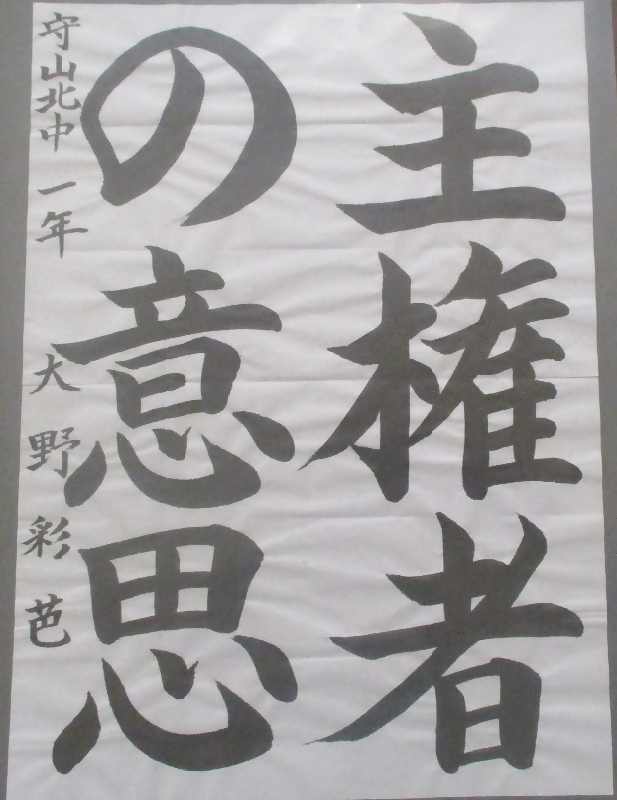 主権者
の意思
守山北中一年 大野彩芭